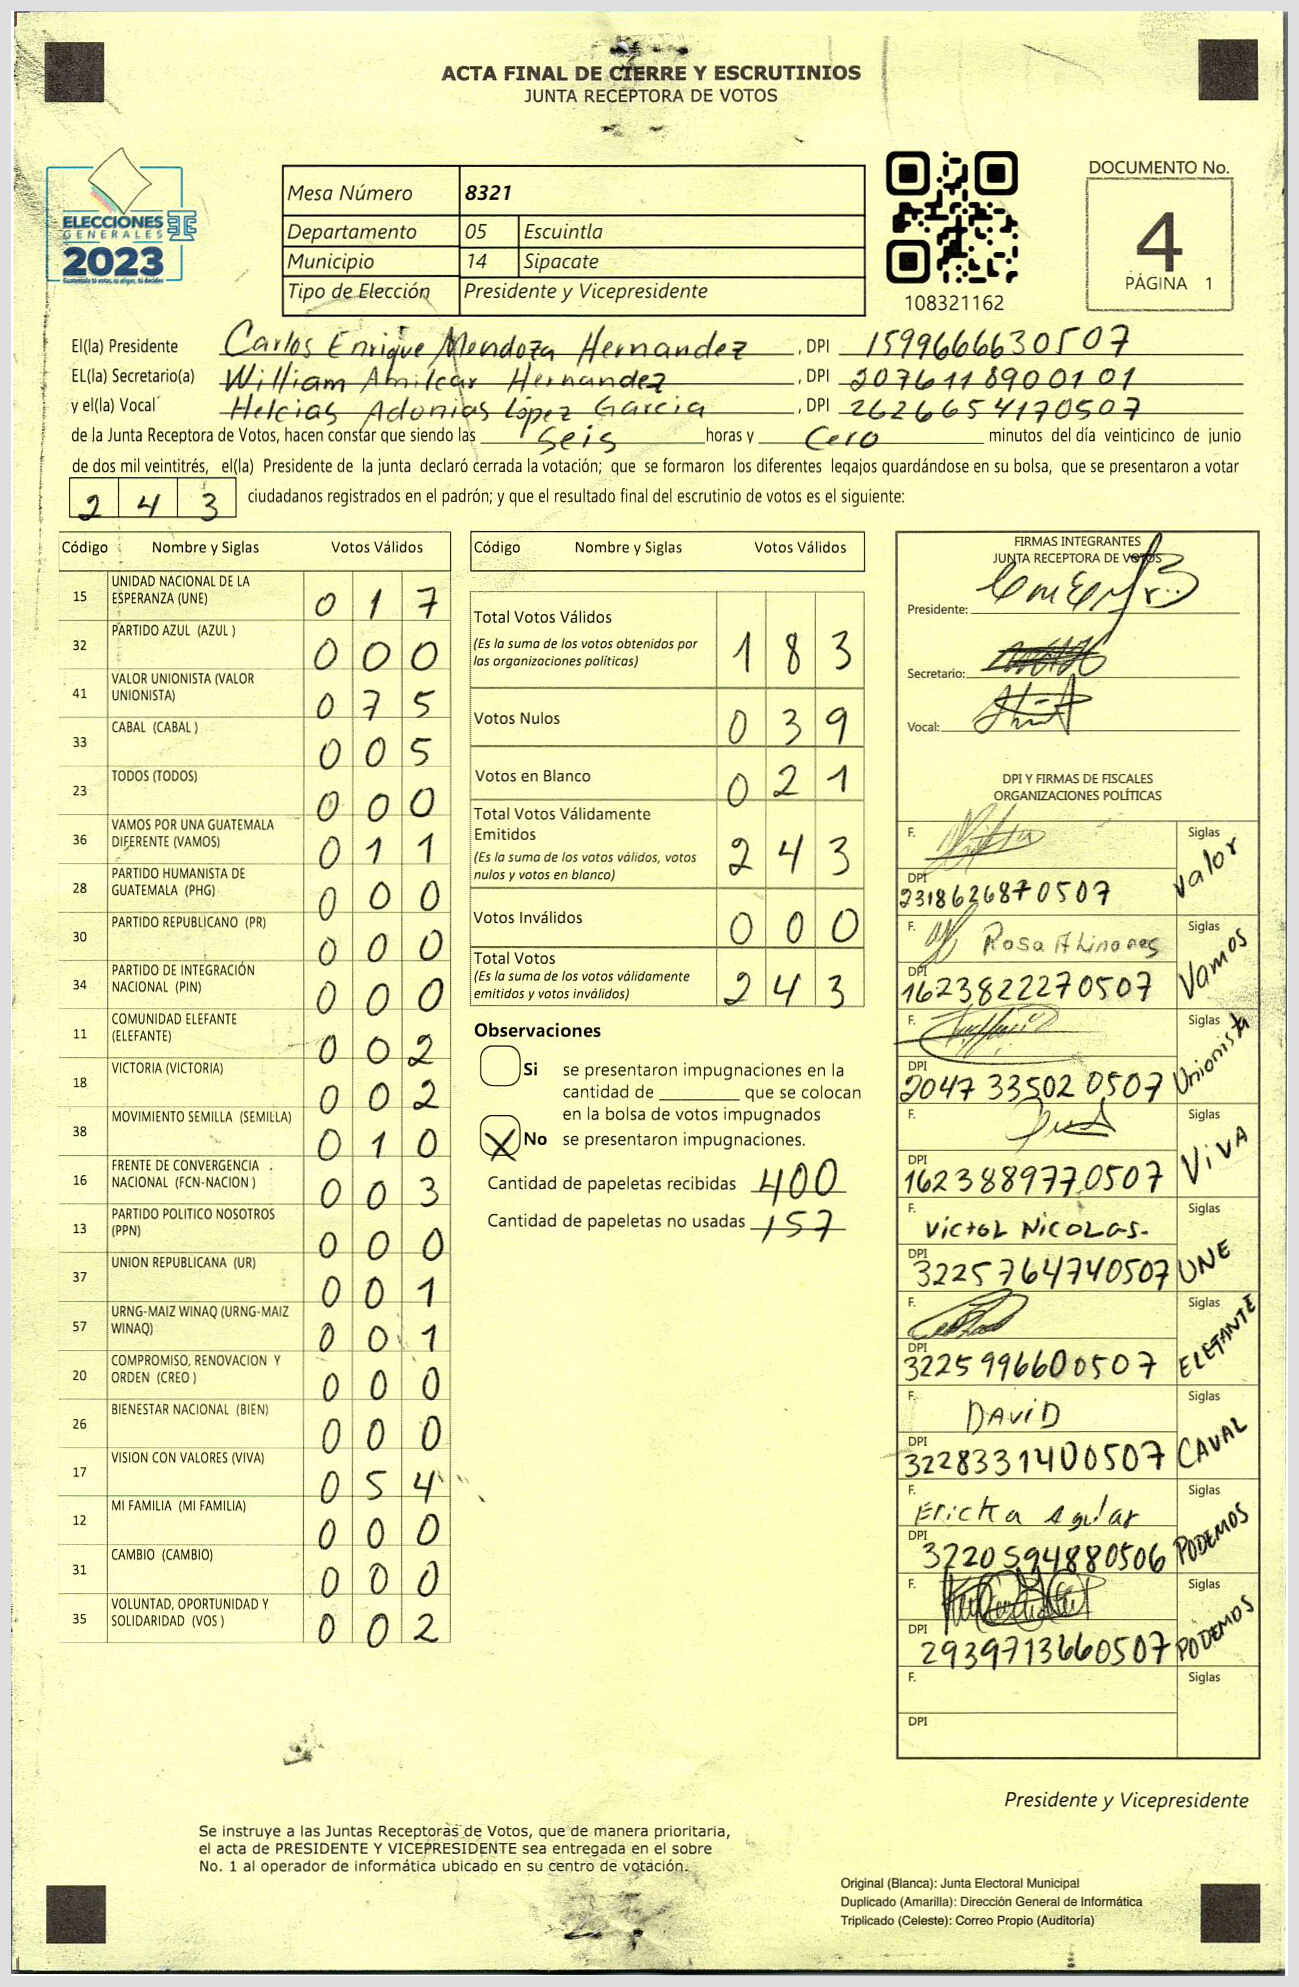 ACTA FINAL DE CIERRE Y ESCRUTINIOS
JUNTA RECEPTORA DE VOTOS
ELECCIONES
GENERALES
2023
Mesa Número 8321
Departamento 05 Escuintla
Municipio 14 Sipacate
Tipo de Elección Presidente y Vicepresidente
108321162
DOCUMENTO No.
4
PÁGINA 1
El(la) Presidente Carlos Enrique Mendoza Hernandez , DPI 1599666630507
EL(la) Secretario(a) William Amilcar Hernandez , DPI 2076118900101
y el(la) Vocal Helcias Adonias López Garcia , DPI 2626654170507
de la Junta Receptora de Votos, hacen constar que siendo las Seis horas y Cero minutos del día veinticinco de junio
de dos mil veintitrés, el(la) Presidente de la junta declaró cerrada la votación; que se formaron los diferentes legajos guardándose en su bolsa, que se presentaron a votar
243 ciudadanos registrados en el padrón; y que el resultado final del escrutinio de votos es el siguiente:
Código Nombre y Siglas Votos Válidos
15 UNIDAD NACIONAL DE LA ESPERANZA (UNE) 017
32 PARTIDO AZUL (AZUL ) 000
41 VALOR UNIONISTA (VALOR UNIONISTA) 075
33 CABAL (CABAL ) 005
23 TODOS (TODOS) 000
36 VAMOS POR UNA GUATEMALA DIFERENTE (VAMOS) 011
28 PARTIDO HUMANISTA DE GUATEMALA (PHG) 000
30 PARTIDO REPUBLICANO (PR) 000
34 PARTIDO DE INTEGRACIÓN NACIONAL (PIN) 000
11 COMUNIDAD ELEFANTE (ELEFANTE) 002
18 VICTORIA (VICTORIA) 002
38 MOVIMIENTO SEMILLA (SEMILLA) 010
16 FRENTE DE CONVERGENCIA NACIONAL (FCN-NACION ) 003
13 PARTIDO POLITICO NOSOTROS (PPN) 000
37 UNION REPUBLICANA (UR) 001
57 URNG-MAIZ WINAQ (URNG-MAIZ WINAQ) 001
20 COMPROMISO, RENOVACION Y ORDEN (CREO ) 000
26 BIENESTAR NACIONAL (BIEN) 000
17 VISION CON VALORES (VIVA) 054
12 MI FAMILIA (MI FAMILIA) 000
31 CAMBIO (CAMBIO) 000
35 VOLUNTAD, OPORTUNIDAD Y SOLIDARIDAD (VOS ) 002
Código Nombre y Siglas Votos Válidos
Total Votos Válidos 183
(Es la suma de los votos obtenidos por
las organizaciones políticas)
Votos Nulos 039
Votos en Blanco 021
Total Votos Válidamente
Emitidos 243
(Es la suma de los votos válidos, votos
nulos y votos en blanco)
Votos Inválidos 000
Total Votos 243
(Es la suma de los votos válidamente
emitidos y votos inválidos)
Observaciones
Si se presentaron impugnaciones en la
cantidad de ________ que se colocan
en la bolsa de votos impugnados
X No se presentaron impugnaciones.
Cantidad de papeletas recibidas 400
Cantidad de papeletas no usadas 157
FIRMAS INTEGRANTES
JUNTA RECEPTORA DE VOTOS
Presidente:
Secretario:
Vocal:
DPI Y FIRMAS DE FISCALES
ORGANIZACIONES POLÍTICAS
F. Siglas Valor
DPI 2318626870507
F. Rosa Siglas Vamos
DPI 1623822270507
F. Siglas Unionista
DPI 2047 33502 0507
F. Siglas VIVA
DPI 1623889770507
F. Victor Nicolas. Siglas UNE
DPI 3225764740507
F. Siglas ELEFANTE
DPI 3225996600507
F. DAVID Siglas CAVAL
DPI 3228331400507
F. Ericka Siglas PODEMOS
DPI 3220594880506
F. Siglas PODEMOS
DPI 2939713660507
F. Siglas
DPI
Presidente y Vicepresidente
Se instruye a las Juntas Receptoras de Votos, que de manera prioritaria,
el acta de PRESIDENTE Y VICEPRESIDENTE sea entregada en el sobre
No. 1 al operador de informática ubicado en su centro de votación.
Original (Blanca): Junta Electoral Municipal
Duplicado (Amarilla): Dirección General de Informática
Triplicado (Celeste): Correo Propio (Auditoría)